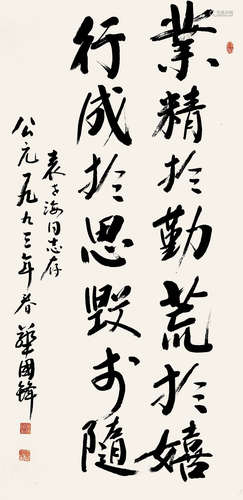 業精於勤荒於嬉
行成於思毀於隨
袁子海同志存
公元一九九三年春 華國鋒